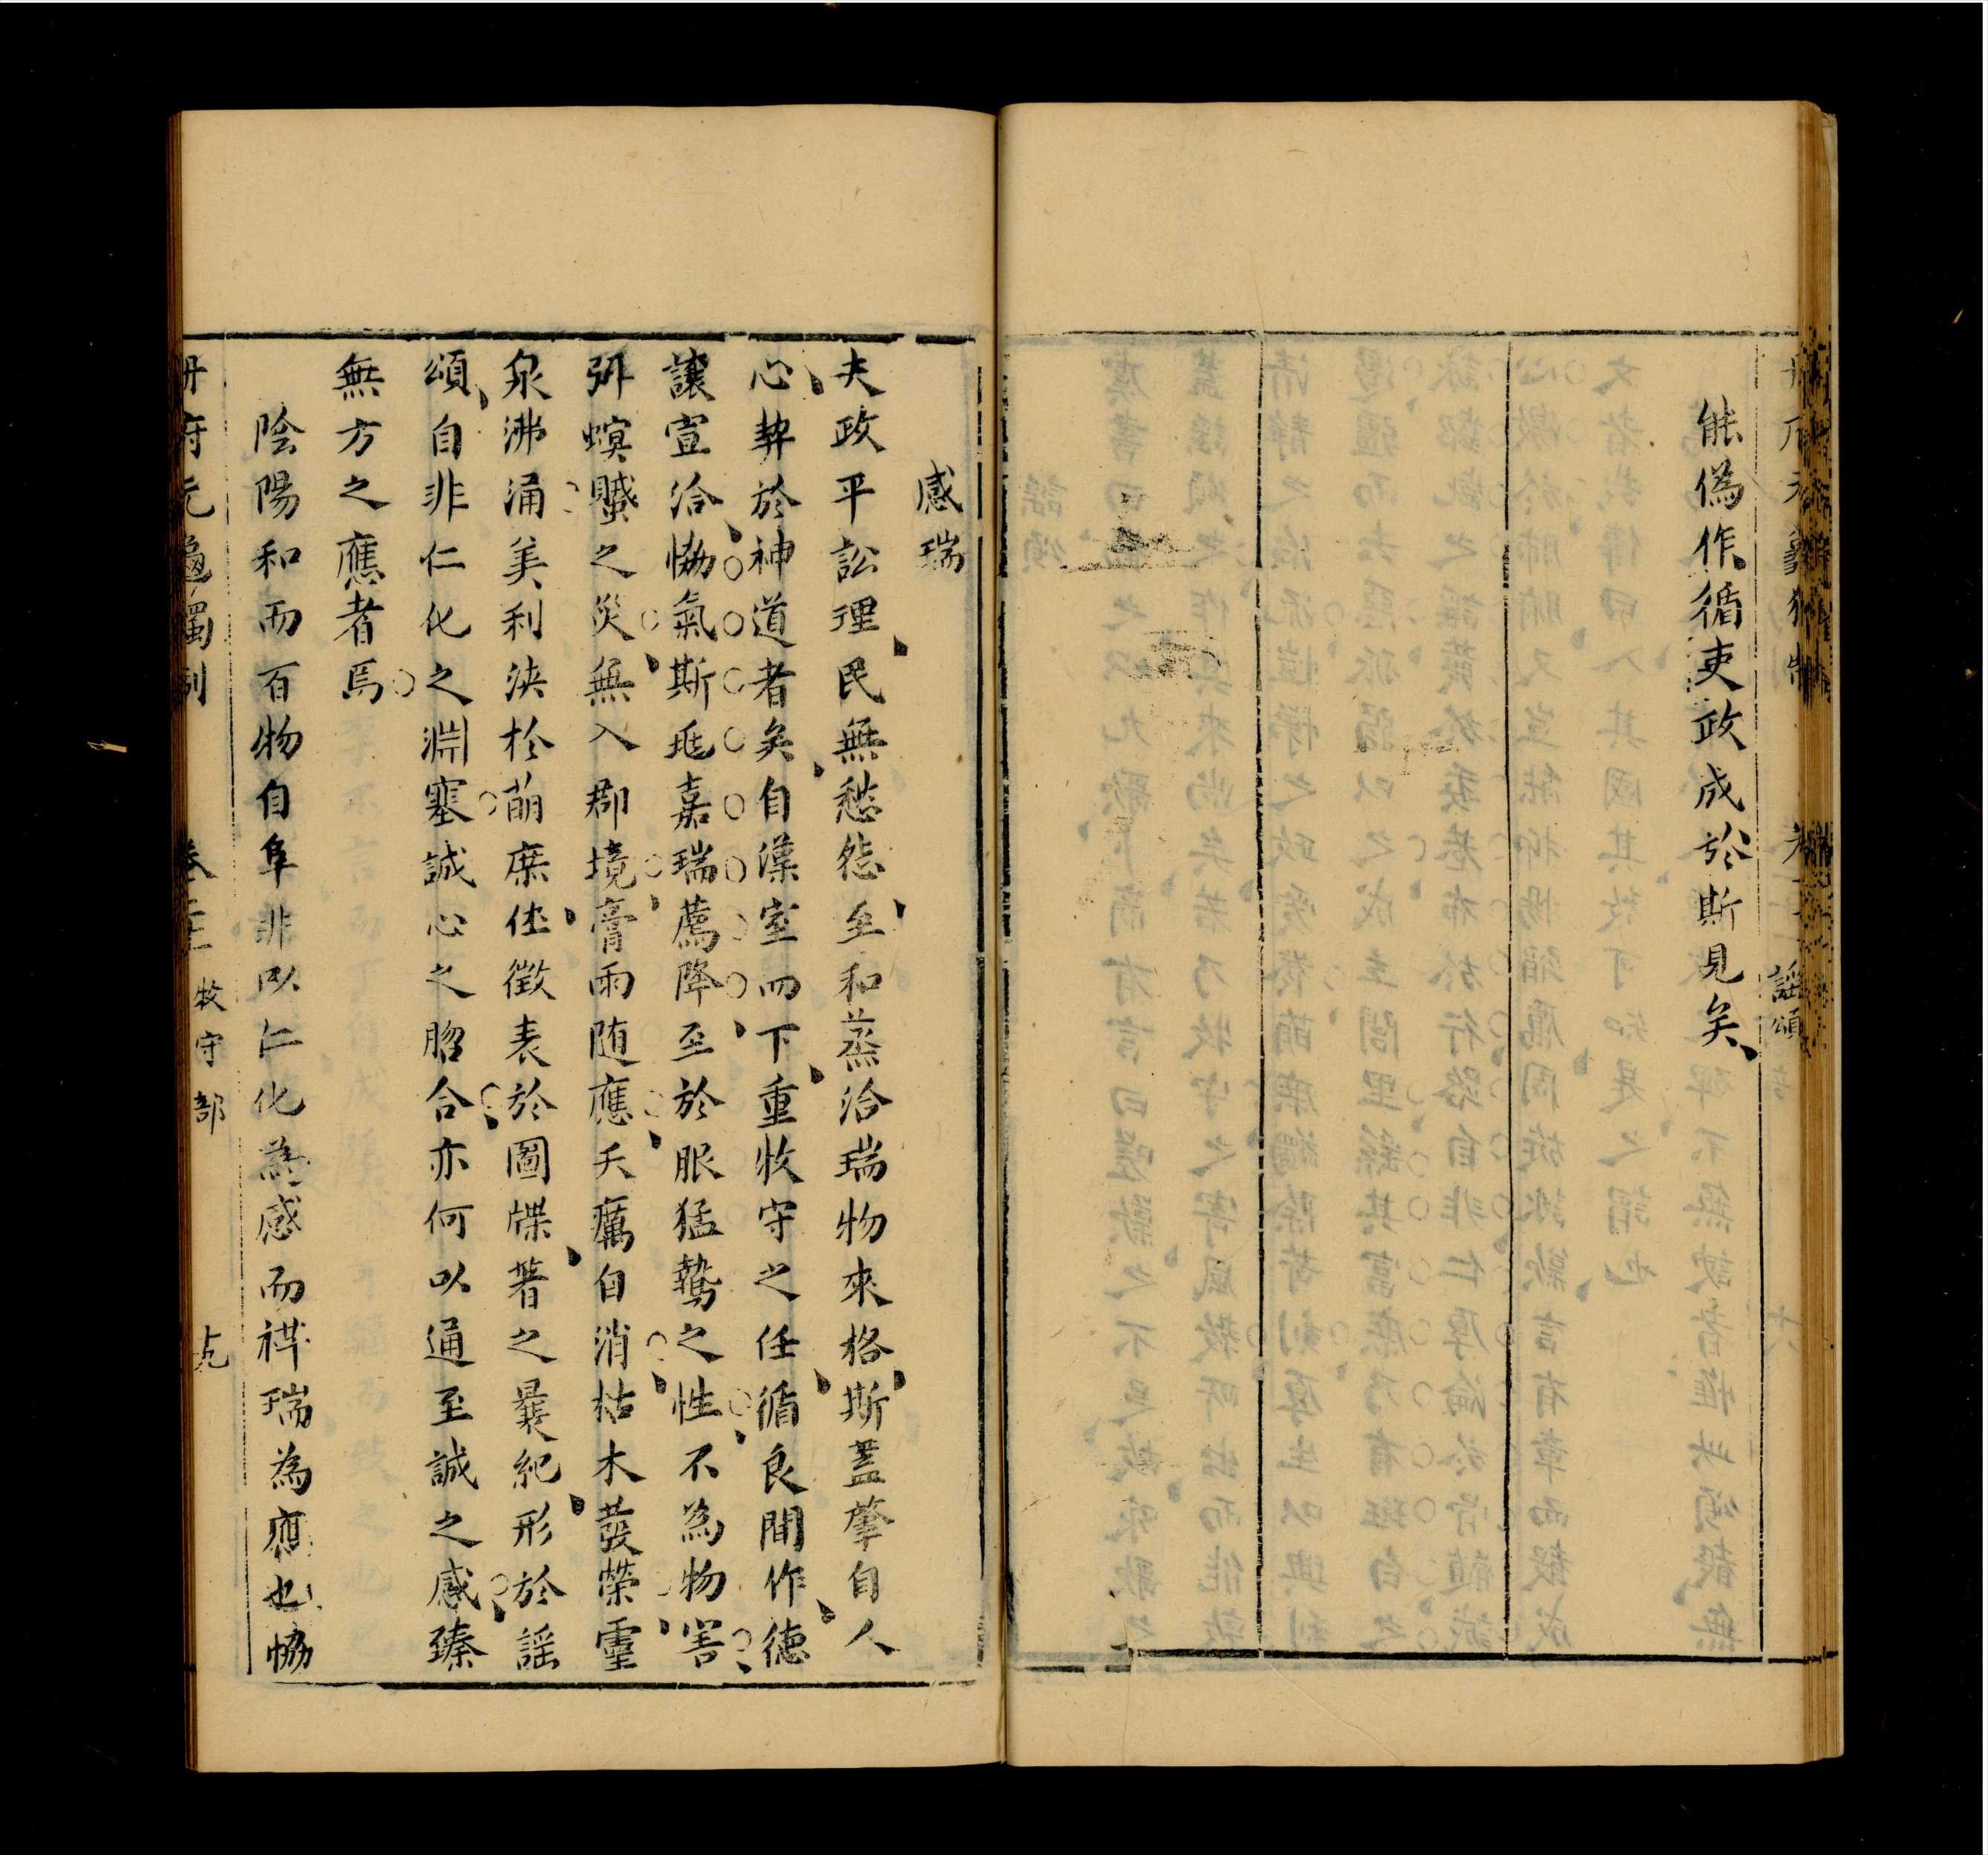 謠頌
能偽作循吏政成於斯見矣
感瑞
夫政平訟理民無愁怨至和蒸洽瑞物來格斯蓋肇自人
心契於神道者矣自漢室而下重牧守之任循良間作徳
讓宣洽恊氣斯𨒪嘉瑞薦降至於服猛鷙之性不為物害
弭螟蠈之災無入郡境膏雨随應夭癘自消枯木發榮靈
泉沸涌美利浹於萌庶佳徵表於圖牒著之曩紀形於謠
頌自非仁化之淵塞誠心之脗合亦何以通至誠之感臻
無方之應者焉
陰陽和而百物自阜非以仁化為感而祥瑞為應也恊
冊府元龜獨制 牧守部 十九